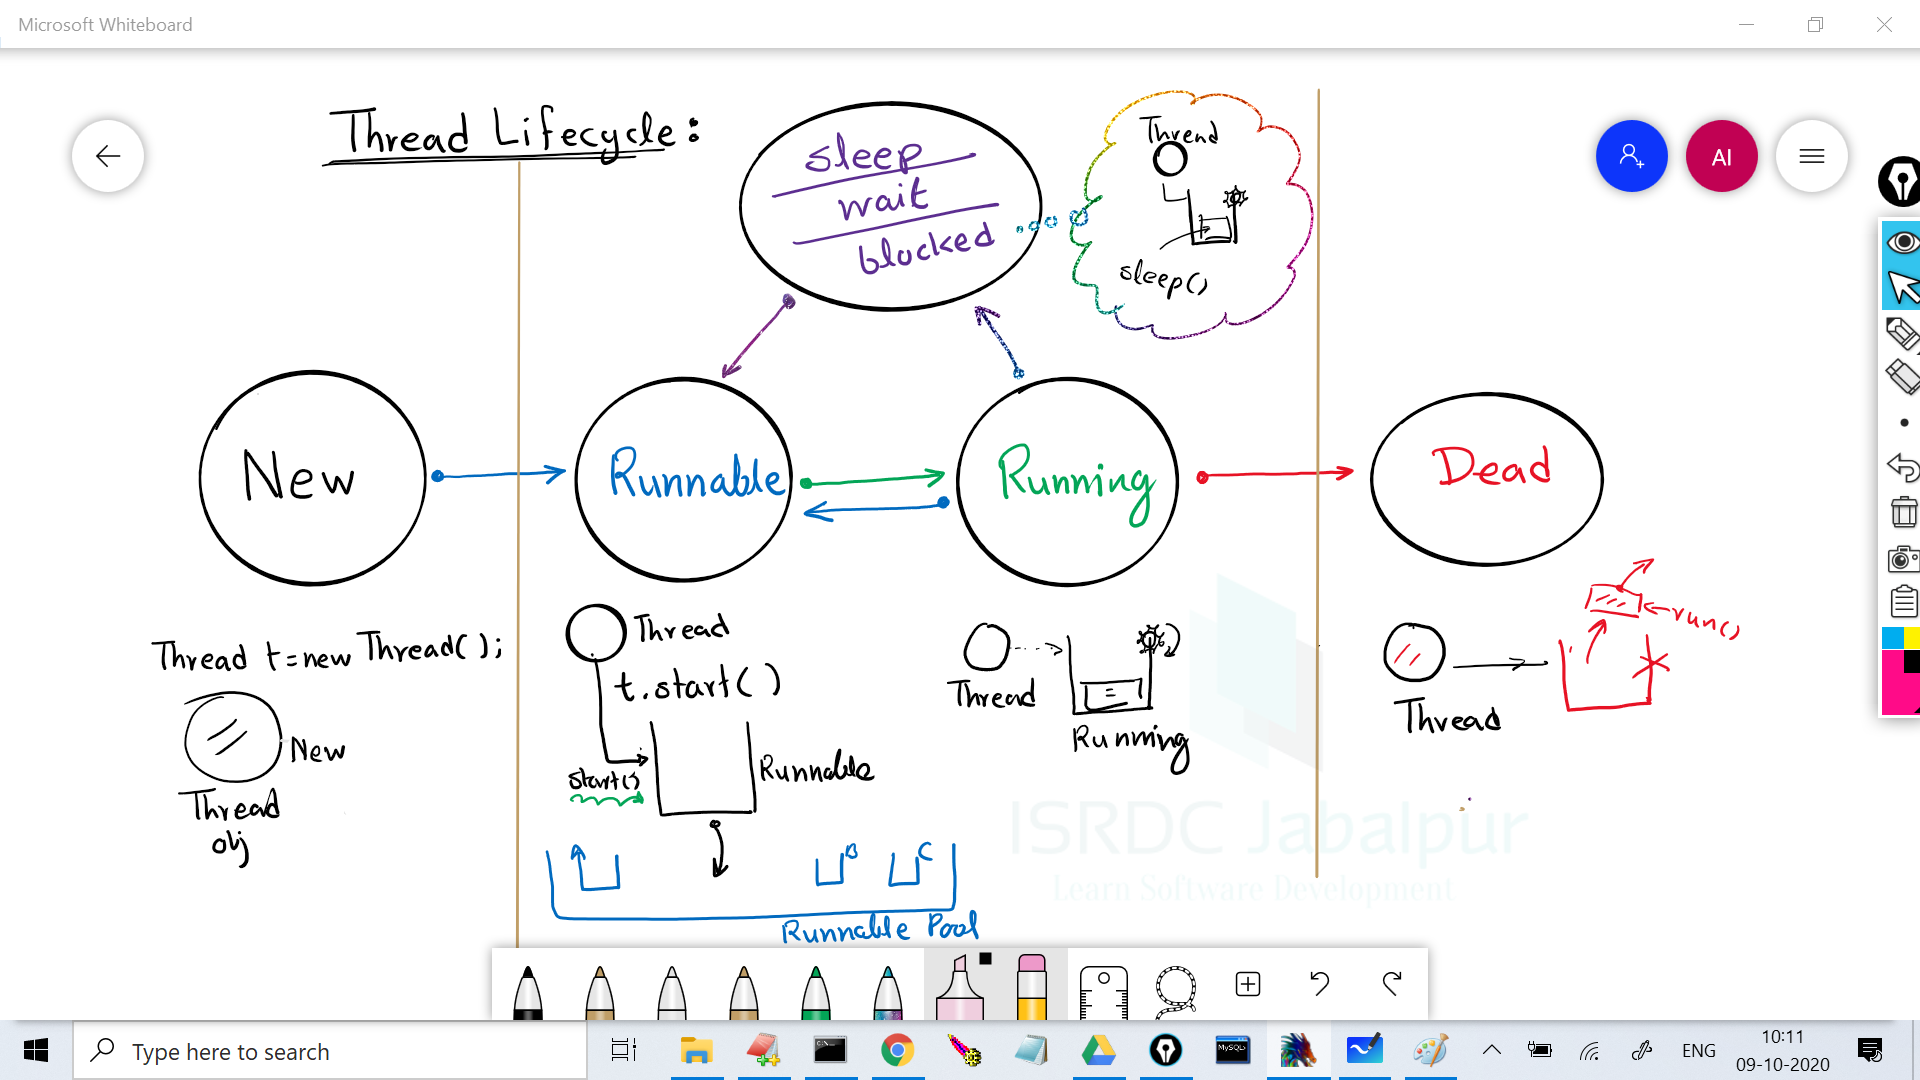 Microsoft Whiteboard
Thread Lifecycle:
sleep
wait
blocked
Thread
sleep()
AI
New
Runnable
Running
Dead
Thread t=new Thread();
New
Thread
obj
Thread
t.start()
start()
Runnable
B
C
Runnable Pool
Thread
Running
run()
Thread
ISRDC Jabalpur
Learn Software Development
Type here to search
MySQL
ENG
10:11
09-10-2020